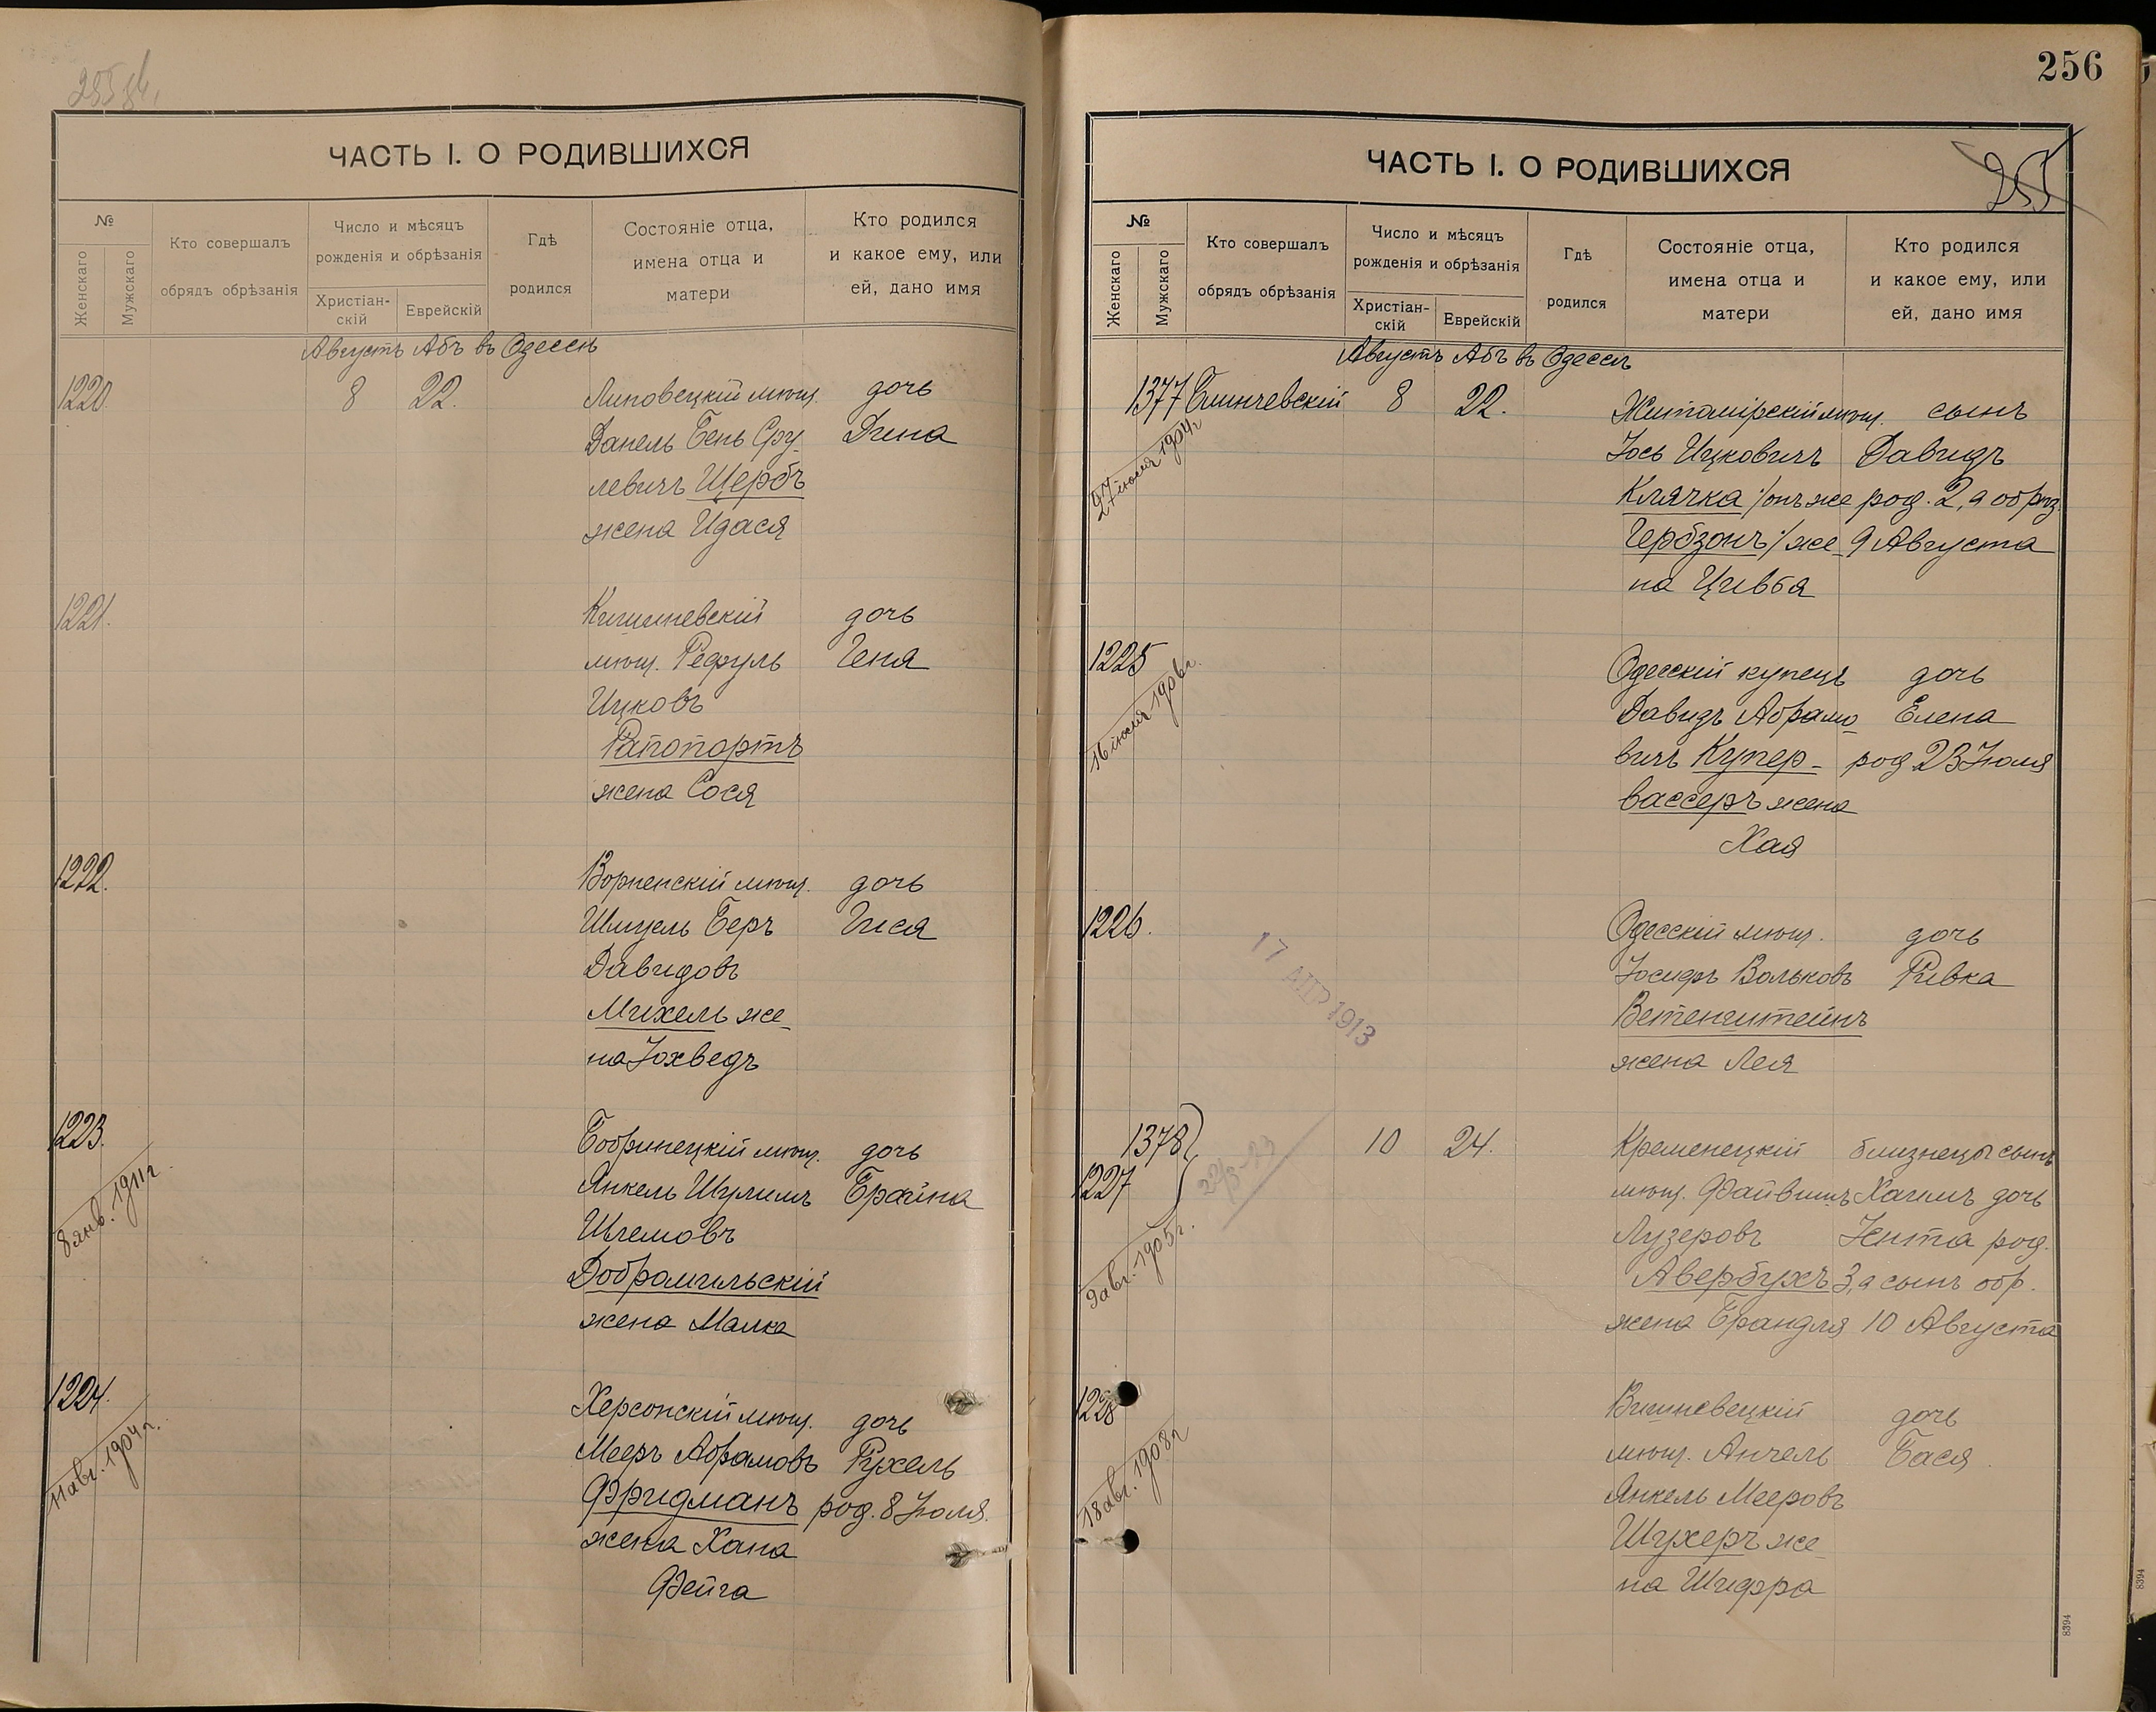 255 об.
ЧАСТЬ I. О РОДИВШИХСЯ
№
Женскаго
Мужскаго
Кто совершалъ
обрядъ обрѣзанія
Число и мѣсяцъ
рожденія и обрѣзанія
Христіан-
скій
Еврейскій
Гдѣ
родился
Состояніе отца,
имена отца и
матери
Кто родился
и какое ему, или
ей, дано имя
Августъ Абъ въ Одессѣ
1220 8 22. Липовецкій мѣщ. дочь
Данель Бень Сру- Дина
левичъ Щербъ
жена Идася
1221. Кишиневскій дочь
мѣщ. Рефуль Геня
Ицковъ
Рапопортъ
жена Сося
1222. Ворненскій мѣщ. дочь
Шмуель Беръ Гися
Давидовъ
Михель же-
на Іохведъ
1223. Бобринецкій мѣщ. дочь
8 янв. 1911 г.
Янкель Шулимъ Брайна
Шлемовъ
Добромильскій
жена Малка
1224. Херсонскій мѣщ. дочь
11 авг. 1904 г.
Мееръ Абрамовъ Рухель
Фридманъ род. 8 Іюля.
жена Хана
Фейга
256
ЧАСТЬ I. О РОДИВШИХСЯ
255
№
Женскаго
Мужскаго
Кто совершалъ
обрядъ обрѣзанія
Число и мѣсяцъ
рожденія и обрѣзанія
Христіан-
скій
Еврейскій
Гдѣ
родился
Состояніе отца,
имена отца и
матери
Кто родился
и какое ему, или
ей, дано имя
Августъ Абъ въ Одессѣ
1377 8 22. Житомірскій мѣщ. сынъ
1904 г
Іось Ицковичъ Давидъ
Клячка /онъ же род. 2, а обрѣз.
Гербзонъ/ же- 9 Августа
на Цивья
1225 Одесскій купецъ дочь
16 іюля 1906 г.
Давидъ Абрамо- Елена
вичъ Купер- род 23 Іюля
вассеръ жена
Хая
1226. Одесскій мѣщ. дочь
17 АПР 1913
Іосифъ Вольковъ Ривка
Ветенштейнъ
жена Лея
1378 10 24. Кременецкій близнецы сынъ
1227 мѣщ. Файвишъ Хаимъ дочь
9 авг. 1905 г.
Лузеровъ Іента род.
Авербухъ 3, а сынъ обр.
жена Брандля 10 Августа
1228 Вишневецкій дочь
18 авг. 1908 г
мѣщ. Анчель Бася
Янкель Мееровъ
Шухеръ же-
на Шифра
8394
8394